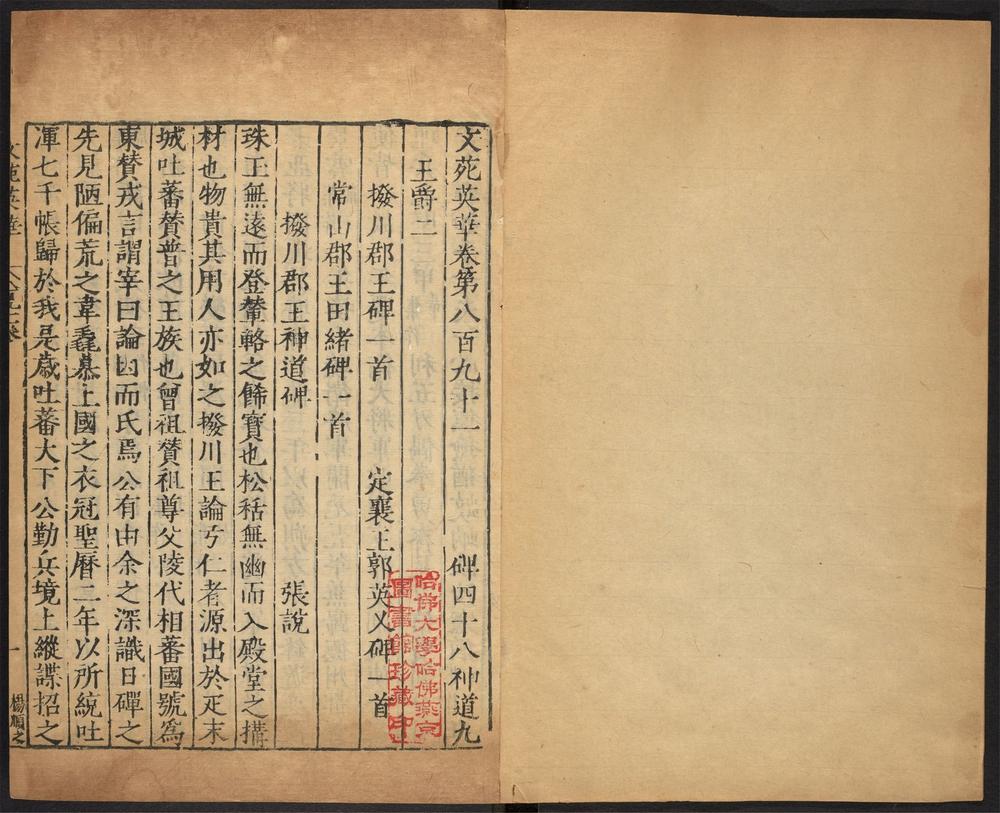 文苑英華卷第八百九十一　碑四十八神道九
王爵二
撥川郡王碑一首　定襄王郭英乂碑一首
常山郡王田緒碑一首
撥川郡王神道碑　張說
珠玉無遠而登輦輅之餙寶也松栝無幽而入殿堂之搆
材也物貴其用人亦如之撥川王論弓仁者源出於疋末
城吐蕃賛普之王族也曾祖賛祖尊父陵代相蕃國號爲
東賛戎言謂宰曰論因而氏焉公有由余之深識日磾之
先見陋偏荒之韋毳慕上國之衣冠聖曆二年以所統吐
渾七千帳歸於我是歲吐蕃大下公勤兵境上縱諜招之
文苑英華
一
楊順之
哈佛大學哈佛燕京
圖書館珍藏印